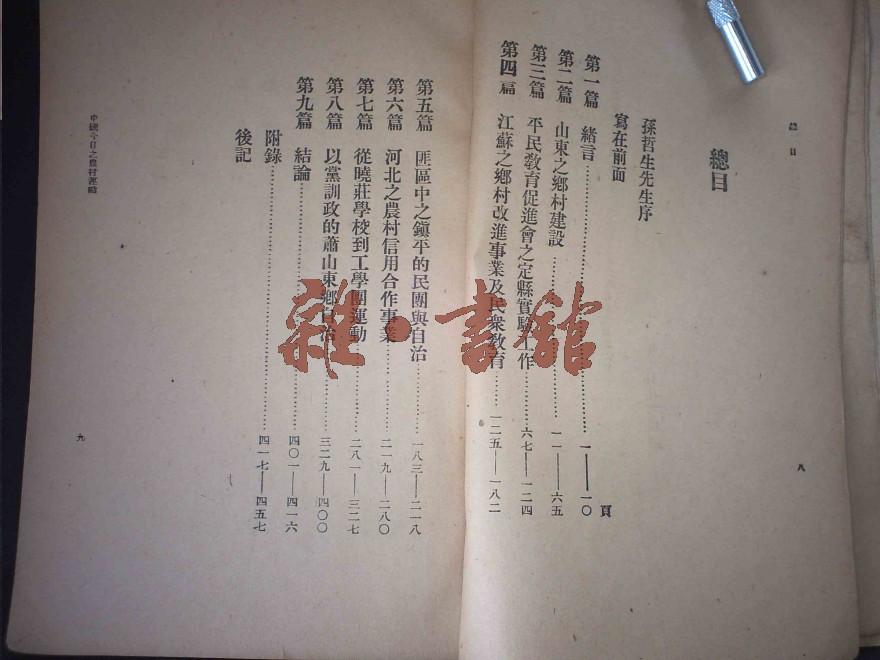 總目
總目
孫哲生先生序
寫在前面
頁
第一篇 緒言……一——一〇
第二篇 山東之鄉村建設……一一——六五
第三篇 平民教育促進會之定縣實驗工作……六七——一二四
第四篇 江蘇之鄉村改進事業及民衆教育……一二五——一八二
八
第五篇 匪區中之鎭平的民團與自治……一八三——二一八
第六篇 河北之農村信用合作事業……二一九——二八〇
第七篇 從曉莊學校到工學團運動……二八一——三二七
第八篇 以黨訓政的蕭山東鄉自治……三二九——四〇〇
第九篇 結論……四〇一——四一六
附錄……四一七——四五七
後記
中國今日之農村運動
九
雜·書館